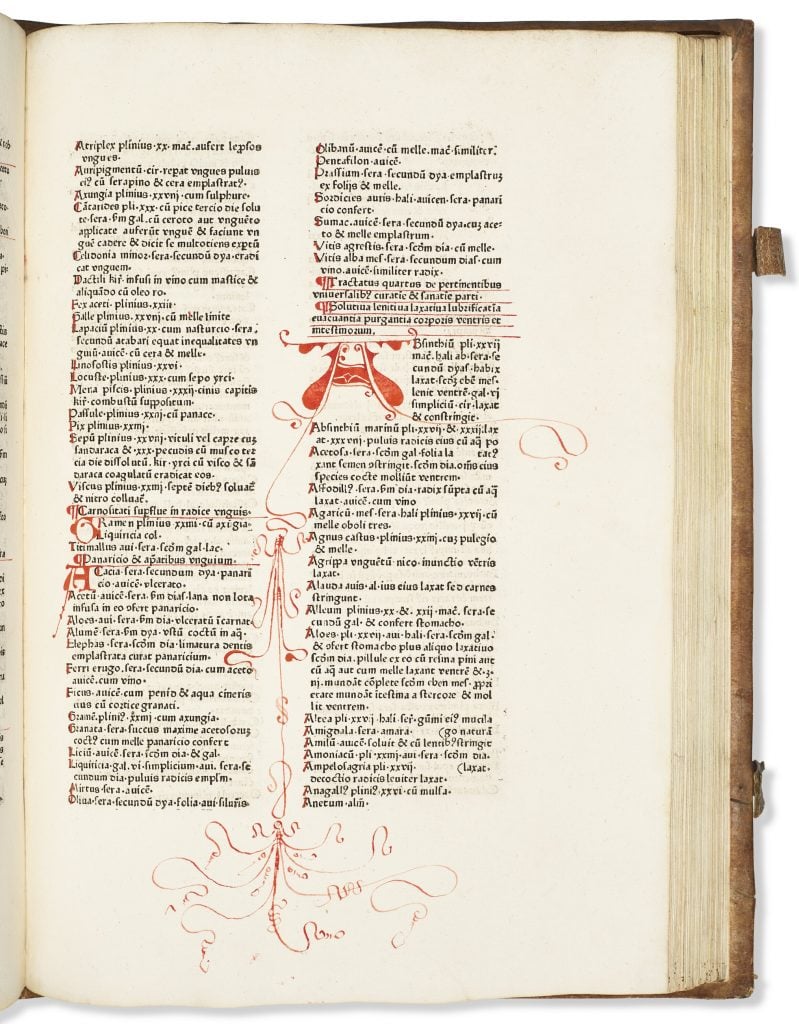 Atriplex plinius·xx·mac̄·aufert leprosos
vngues·
Auripigmentū·cir·reꝑat vngues puluis
eiꝰ cū serapino & cera emplastratꝰ·
Axungia plinius·xxvij·cum sulphure·
Cātarides pli·xxx·cū pice tercio die solu
te·sera·ẜm gal·cū ceroto aut vnguēto
applicate auferūt vnguē & faciunt vn
guē cadere & dicit se multotiens exꝑtū
Celidonia minor·sera·secundū dya·eradi
cat vnguem·
Dactili kir̄·infusi in vino cum mastice &
aliquādo cū oleo ro·
Fex aceti·plinius·xxiij·
Galle plinius·xxvij·cū melle linite
Lapaciū plinius·xx·cum nasturcio·sera·
secundū acabari equat inequalitates vn
guiū·auicē·cū cera & melle·
Linosostis plinius·xxvi·
Locuste·plinius·xxx·cum sepo yrci·
Mena piscis·plinius·xxxij·cinis capitis
kir̄·combustū suppositum·
Passule·plinius·xxiij·cū panace·
Pix plinius·xxiiij·
Sepū plinius·xxvij·vituli vel capre cuꝫ
sandaraca & xxx·pecudis cū musco ter
cia die dissolutū·kir·yrci cū visco & sā
daraca coagulatū eradicat eos·
Viscus plinius·xxiiij·septē diebꝰ soluat
& nitro colluat·
¶Carnositati suꝑflue in radice vnguis·
GRamen plinius xxiiij·cū axūgia·
Liquiricia col·
Titimallus aui·sera·scd̄m gal·lac·
¶Panaricio & apatibus vnguium·
ACacia·sera·secundum dya·panari
cio·auicē·vlcerato·
Acetū·auicē·sera·ẜm dias·lana non lota
infusa in eo ofert panaricio·
Aloes·aui·sera·ẜm dia·vlceratū īcarnat
Alumē·sera·ẜm dya·vstū coctū in aq̄·
Elephas·sera·scd̄m dia·limatura dentis
emplastrata curat panaricium·
Ferri erugo·sera·secundū dia·cum aceto
auicē·cum vino·
Ficus·auicē·cum penid & aqua cineris
eius cū cortice granati·
Gramē·pliniꝰ·xxiiij·cum axungia·
Granata·sera·succus maxime acetosoruꝫ
coctꝰ cum melle panaricio confert
Liciū·auicē·sera·scd̄m dia·& gal·
Liquiricia·gal·vi·simplicium·aui·sera·se
cundum dia·puluis radicis emplm̄·
Mirtus·sera·auicē·
Oliua·sera·secundū dya·folia·aui·siluris·
Olibanū·auicē·cū melle·mac̄·similiter·
Pentafilon·auicē·
Prassium·sera·secundū dya·emplastruꝫ
ex folijs & melle·
Sordicies auris·hali·auicen·sera·panari
cio confert·
Sumac·auicē·sera·secundū dya·cuꝫ ace-
to & melle emplastrum·
Vitis agrestis·sera·scd̄m dia·cū melle·
Vitis alba mes·sera·secundum dias·cum
vino·auicē·similiter radix·
¶Tractatus quartus de pertinentibus
vniuersalibꝰ curatie & sanatie parti·
¶Solutiua lenitiua laxatiua lubrificatia
euacuantia purgantia corporis ventris et
intestinorum·
ABsinthiū pli·xxvij
mac̄·hali ab·sera·se
cundū dyas·habix
laxat·scd̄ꝫ ebē mes·
lenit ventrē·gal·vj
simpliciū·cir·laxat
& constringit·
Absinthiū marinū pli·xxvij·& xxxij·lax
at·xxxvij·puluis radicis eius cū aq̄ po
Acetosa·sera·scd̄m gal·folia la tatꝰ
xant semen ꝯstringit·scd̄m dia·om̄s eius
species cocte molliūt ventrem·
Affodillꝰ·sera·ẜm dia·radix sūpta cū aq̄
laxat·auicē·cum vino
Agaricū·mes·sera·hali plinius·xxvij·cū
melle oboli tres·
Agnus castus·plinius·xxiiij·cuꝫ pulegio
& melle·
Agrippa vnguētū·nico·inunctio vētris
laxat·
Alauda auis·al·ius eius laxat sed carnes
stringunt·
Alleum plinius·xx·& xxij·mac̄·sera·se
cundū gal·& confert stomacho·
Aloes·pli·xxvij·aui·hali·sera·scd̄m gal·
& ofert stomacho plus aliquo laxatiuo
scd̄m dia·pillule ex eo cū resina pini aut
cū aq̄ aut cum melle laxant ventrē & ·ʒ·
iij·mundāt cōplete scd̄m eben mes·ꝓpri
etate mundāt ītestina a stercore & mol
lit ventrem·
Altea pli·xxvij·hali·ser̄·gūmi eiꝰ mucila
Amigdala·sera·amara· (go naturā
Amilū·auicē·soluit & cū lentibꝰ stringit
Amoniacū pli·xxiiij·aui·sera·scd̄m dia·
Ampelosagria pli·xxvij· (laxat·
decoctio radicis leuiter laxat·
Anagallꝰ pliniꝰ·xxvi·cū mulsa·
Anetum·alm̄·